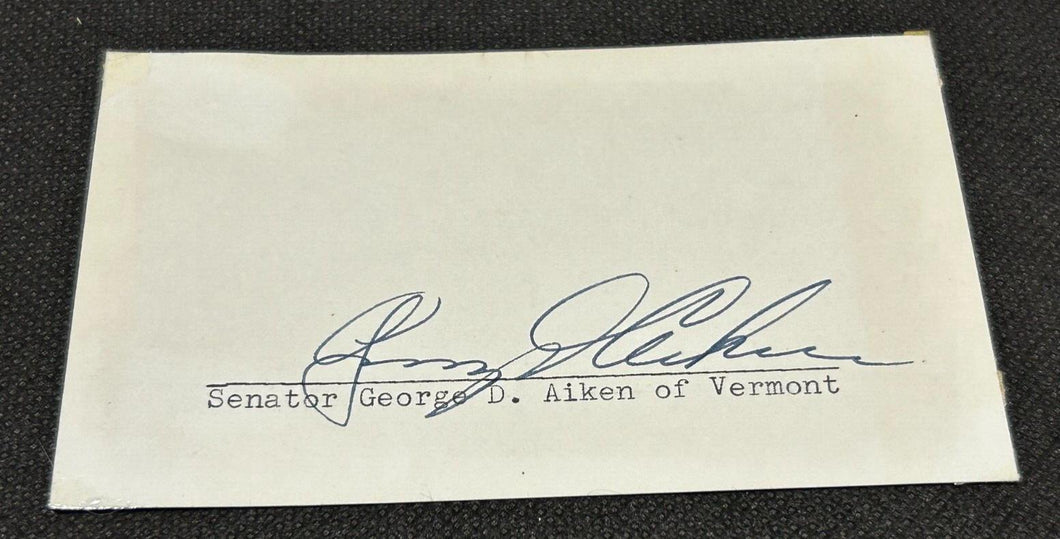 George D Aiken
Senator George D. Aiken of Vermont